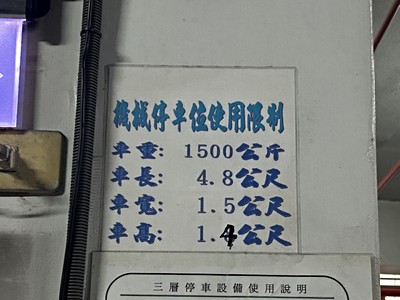 機械停車位使用限制
車重: 1500公斤
車長: 4.8公尺
車寬: 1.5公尺
車高: 1.4公尺
三層停車設備使用說明